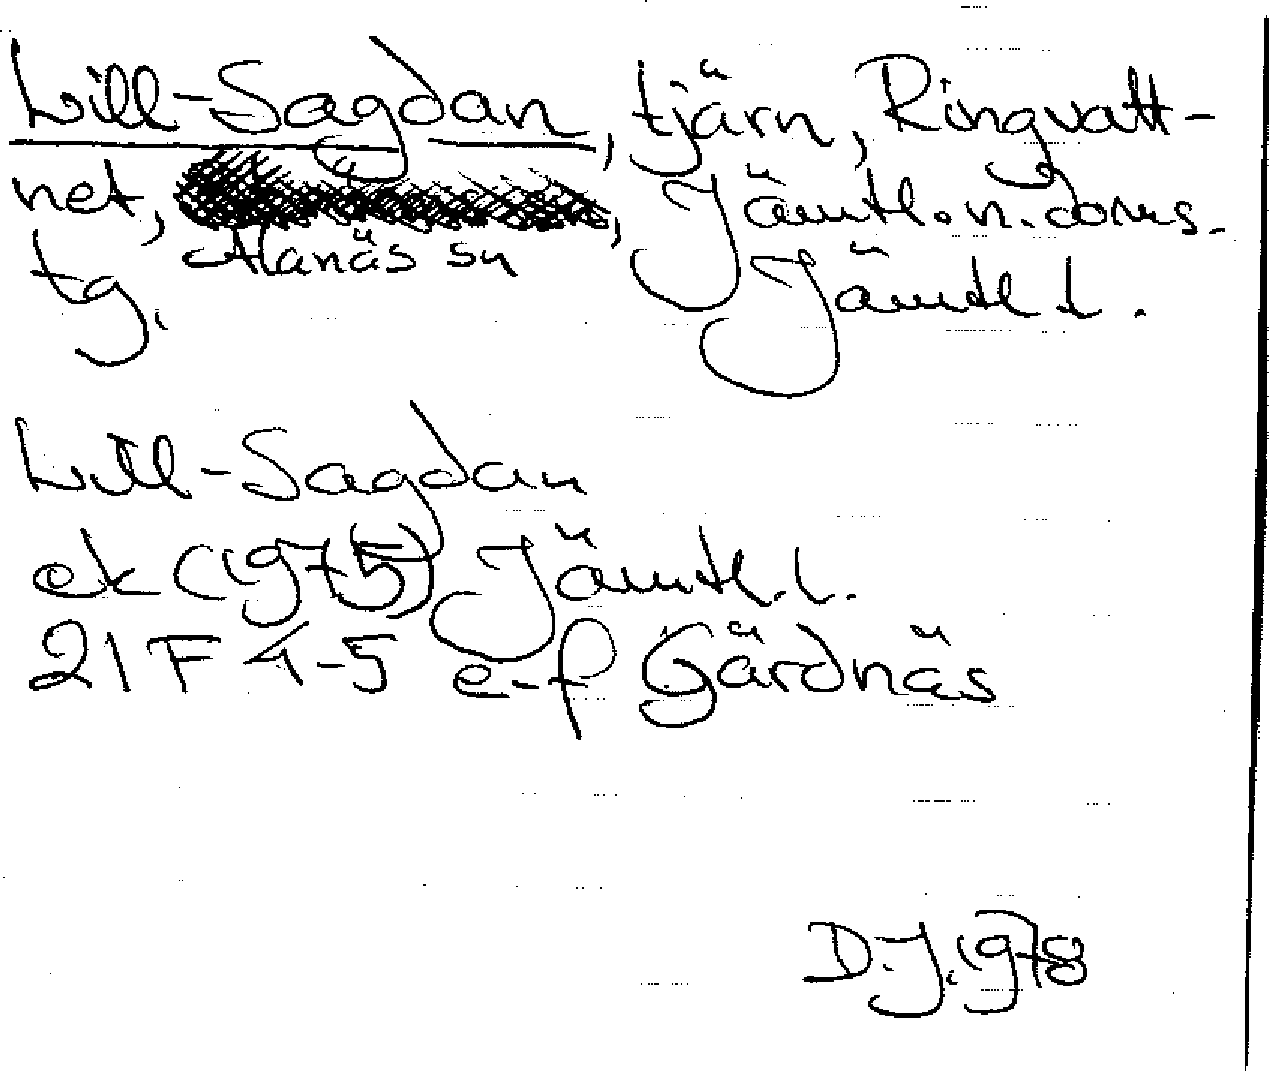 Lill-Sagdan, tjärn, Ringvatt-
net, Alanäs sn, Jämtl. n. doms.
tg. Jämtl l.
Lill-Sagdan
ek (1975) Jämtl. l.
21 F 4-5 e-f Gärdnäs
D.J. 1978